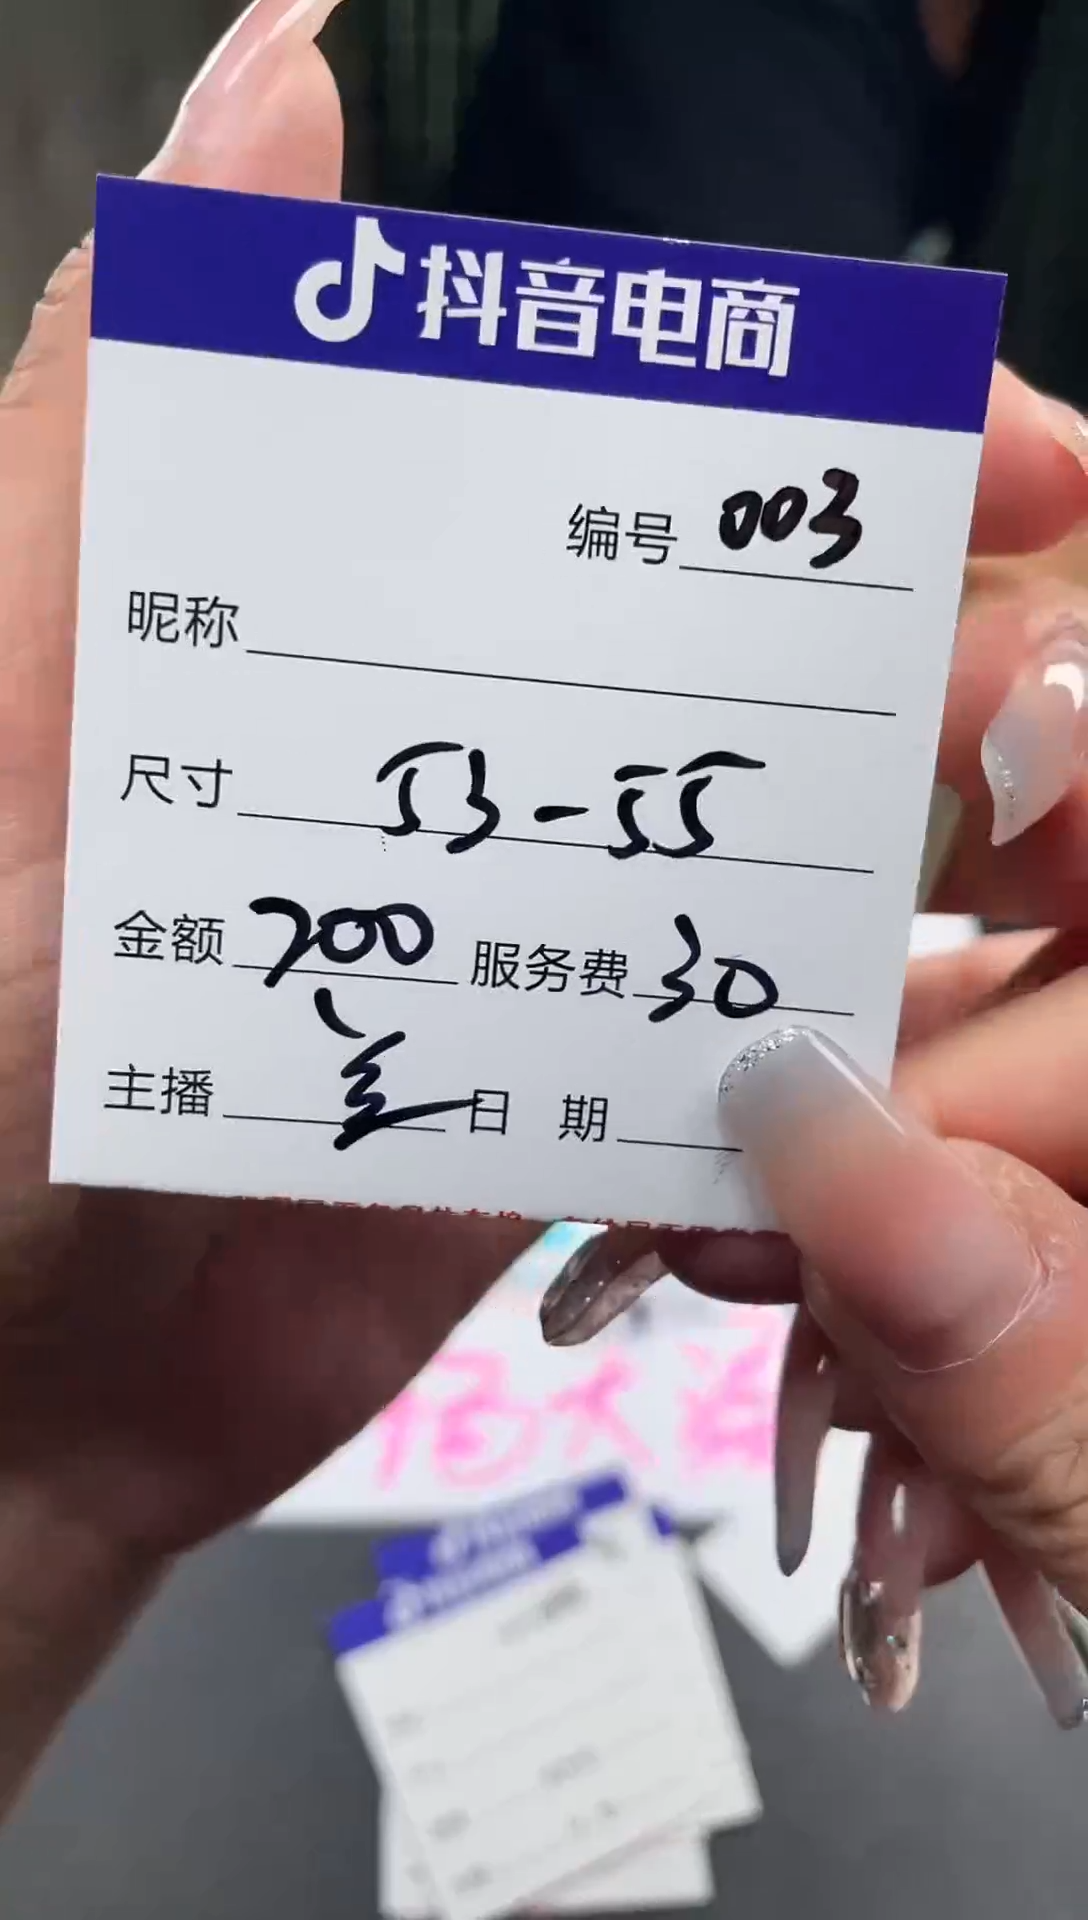 抖音电商
编号 003
昵称
尺寸 53-55
金额 700 服务费 30
主播 兰 日 期